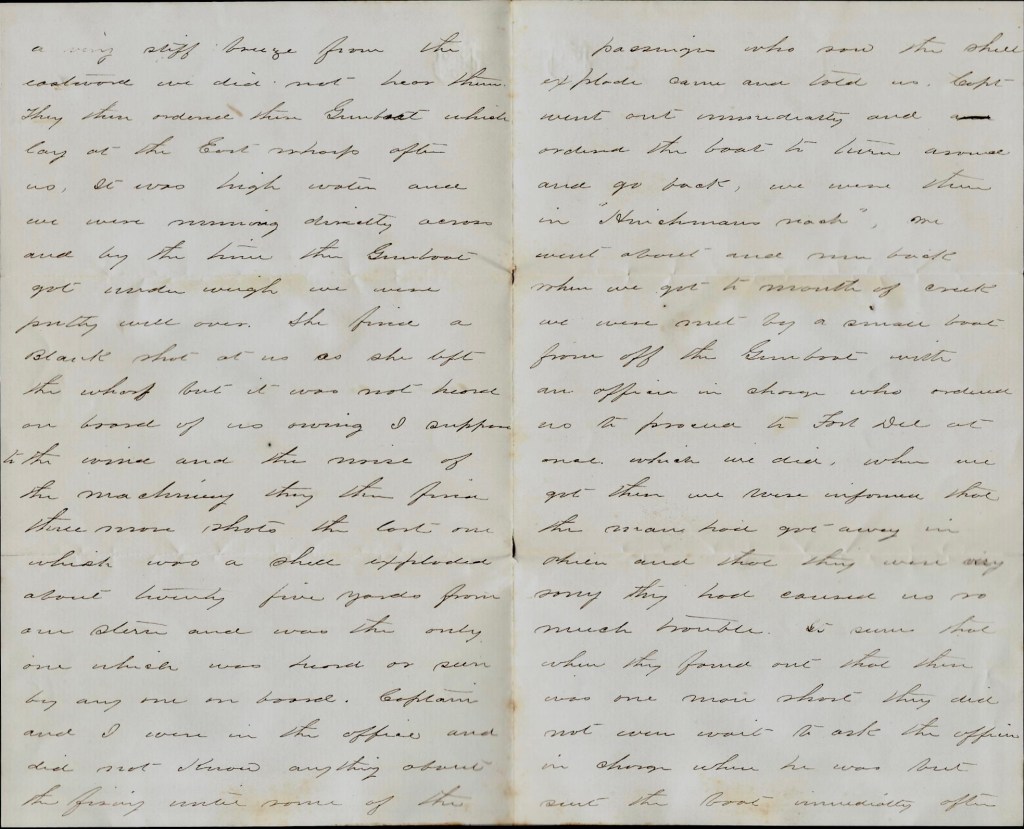 a very stiff breeze from the
eastward we did not hear them.
They then ordered their Gunboat which
lay at the East wharf after
us, It was high water and
we were running directly across
and by the time the Gunboat
got under weigh we were
pretty well over. She fired a
Blank shot at us as she left
the wharf but it was not heard
on board of us owing I suppose
to the wind and the noise of
the machinery they then fired
three more shots the last one
which was a shell exploded
about twenty five yards from
our stern and was the only
one which was heard or seen
by any one on board. Captain
and I were in the office and
did not know anything about
the firing until some of the
passengers who saw the shell
explode came and told us. Capt
went out immediatly and
ordered the boat to turn around
and go back, we were then
in "Hinchmans reach", we
went about and run back
when we got to mouth of creek
we were met by a small boat
from off the Gunboat with
an officer in charge who ordered
us to proceed to Fort Del at
once. which we did, when we
got there we were informed that
the man had got away in
and that they were very
sorry they had caused us so
much trouble. It seems that
when they found out that there
was one man short they did
not even wait to ask the officer
in charge where he was but
sent the boat immediatly after